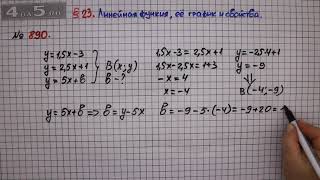 4 на 5.com
§23. Линейная функция, её график и свойства.
№ 890.
y=1,5x-3
y=2,5x+1
y=5x+b
B(x;y)
b-?
1,5x-3=2,5x+1
1,5x-2,5x=1+3
-x=4
x=-4
y=-2,5·4+1
y=-9
B(-4;-9)
y=5x+b => b=y-5x
b=-9-5·(-4)=-9+20=